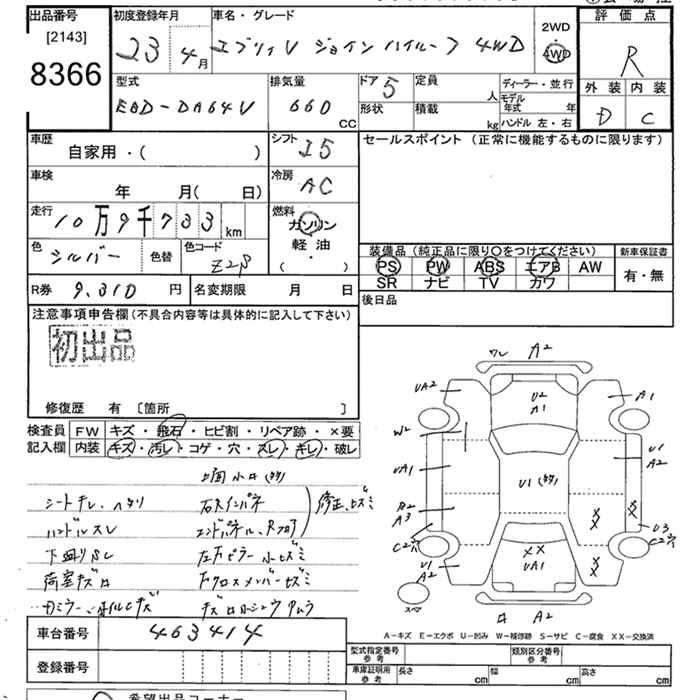 出品番号 初度登録年月 車名・グレード 2WD 評価点
[2143] 23年 4月 エブリィV ジョインハイルーフ 4WD 4WD R
8366
型式 排気量 ドア 5 定員 人 ディーラー・並行 外装 内装
EBD-DA64V 660 CC 形状 積載 kg モデル年式 年 D C
ハンドル 左・右
車歴 シフト I5 セールスポイント (正常に機能するものに限ります)
自家用・( )
車検 年 月( 日) 冷房 AC
走行 10万9千733km 燃料 ガソリン
軽油
( )
色 シルバー 色替 色コード Z2S
装備品 (純正品に限り〇をつけてください) 新車保証書
PS PW ABS エアB AW 有・無
SR ナビ TV カワ
R券 9,310円 名変期限 月 日 後日品
注意事項申告欄(不具合内容等は具体的に記入して下さい)
初出品
修復歴 有 [箇所 ]
検査員 FW キズ・飛石・ヒビ割・リペア跡・×要
記入欄 内装 キズ・汚レ・コゲ・穴・スレ・キレ・破レ
シートキレ、ヘタリ 右Aインパネ 修正、ヒズミ
ハンドルスレ エンドパネル、Rフロア
下廻りSC 左Aピラー 小ヒズミ
荷室キズ Fクロスメンバーヒズミ
ワレ A2
UA2 U2 A1 A1
W2
UA1 U1 U1 A2
B2 A3 XX XX
C2穴 U3 C2穴
U1 A2 XX UA1 XX
スペア A2
A-キズ E-エクボ U-凹み W-補修跡 S-サビ C-腐食 XX-交換済
車台番号 463414
登録番号
型式指定番号 参考 類別区分番号 参考
車庫証明用 参考 長さ cm 幅 cm 高さ cm
希望出品コーナー